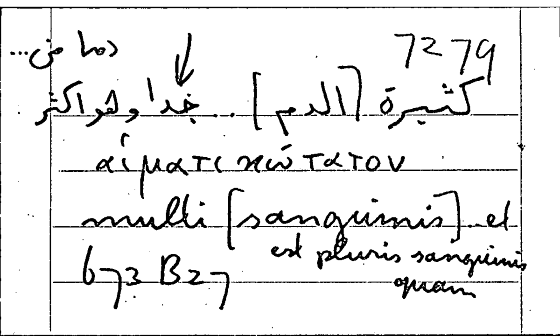 7279
كثيرة [الدم] .. جدا وهو اكثر
دما من...
αἱματικώτατον
multi [sanguinis] et
est pluris sanguinis
quam
673 B27